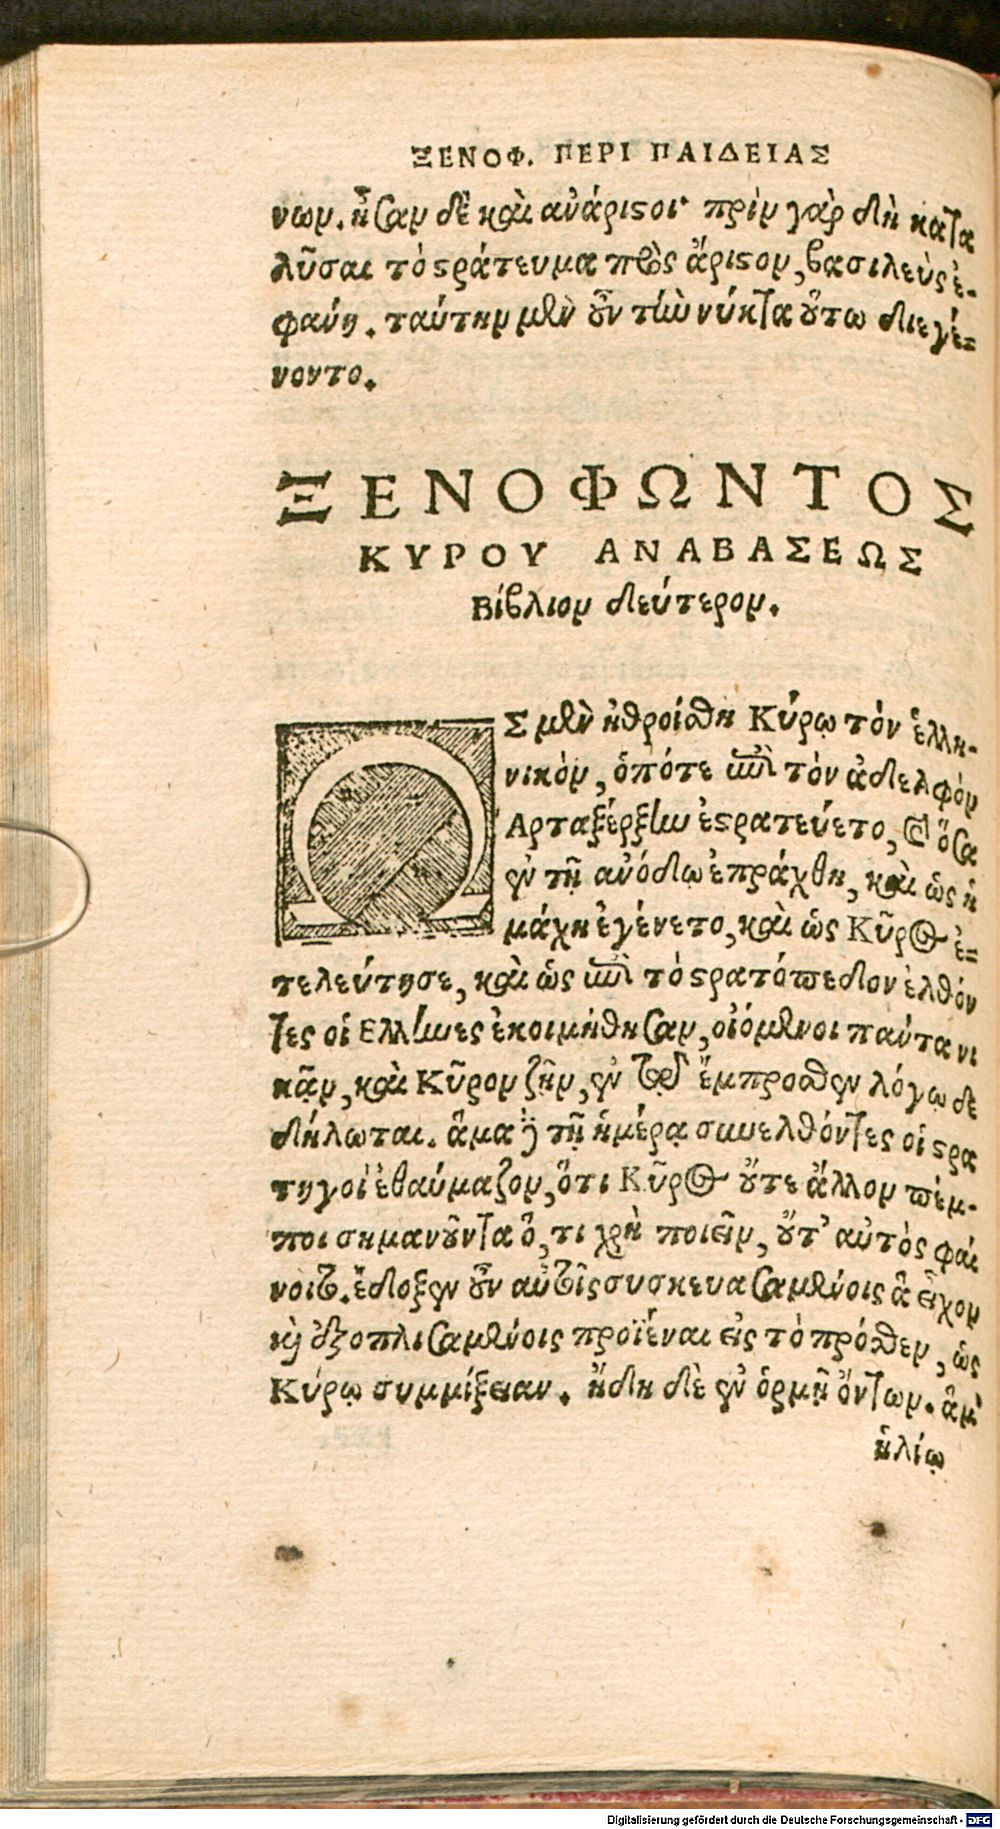 ΞΕΝΟΦ. ΠΕΡΙ ΠΑΙΔΕΙΑΣ
νων. ἦσαν δὲ καὶ ἀνάριστοι· πρὶν γὰρ δὴ κατα
λῦσαι τὸ στράτευμα πρὸς ἄριστον, βασιλεὺς ἐ-
φάνη. ταύτην μὲν οὖν τὴν νύκτα οὕτω διεγέ=
νοντο.
ΞΕΝΟΦΩΝΤΟΣ
ΚΥΡΟΥ ΑΝΑΒΑΣΕΩΣ
Βίβλιον δεύτερον.
ΩΣ μὲν ἠθροίσθη Κύρῳ τὸν ἑλλη-
νικὸν, ὁπότε ἐπὶ τὸν ἀδελφὸν
Ἀρταξέρξην ἐστρατεύετο, καὶ ὅσα
ἐν τῇ ἀνόδῳ ἐπράχθη, καὶ ὡς ἡ
μάχη ἐγένετο, καὶ ὡς Κῦρος ἐ=
τελεύτησε, καὶ ὡς ἐπὶ τὸ στρατόπεδον ἐλθόν
τες οἱ Ελληνες ἐκοιμήθησαν, οἰόμενοι πάντα νι
κᾷν, καὶ Κῦρον ζῇν, ἐν τῷ ἔμπροσθεν λόγῳ δε
δήλωται. ἅμα δὲ τῇ ἡμέρᾳ συνελθόντες οἱ στρα
τηγοὶ ἐθαύμαζον, ὅτι Κῦρος οὔτε ἄλλον πέμ-
ποι σημανοῦντα ὅ, τι χρὴ ποιεῖν, οὔτ' αὐτὸς φαί
νοιτο. ἔδοξεν οὖν αὐτοῖς συσκευασαμένοις ἃ εἶχον
καὶ ἐξοπλισαμένοις προϊέναι εἰς τὸ πρόσθεν, ὡς
Κύρῳ συμμίξειαν. ἤδη δὲ ἐν ὁρμῇ ὄντων. ἅμ'
ἡλίῳ
Digitalisierung gefördert durch die Deutsche Forschungsgemeinschaft - DFG